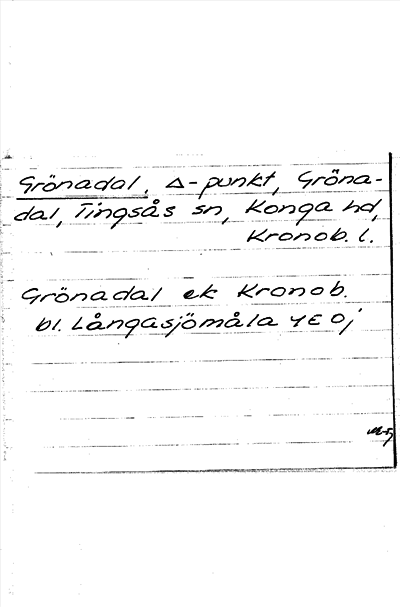 Grönadal, Δ-punkt, Gröna-
dal, Tingsås sn, Konga hd,
Kronob. l.
Grönadal ek Kronob.
bl. Långasjömåla 4E 0j